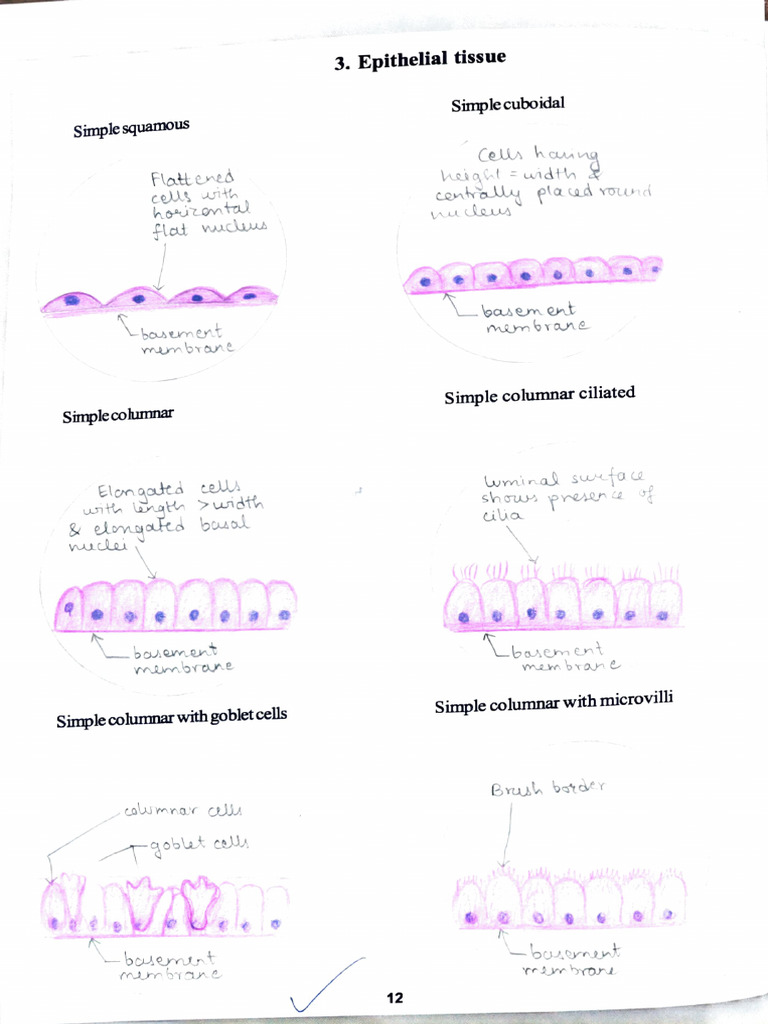 3. Epithelial tissue
Simple squamous
Flattened
cells with
horizontal
flat nucleus
basement
membrane
Simple cuboidal
Cells having
height = width &
centrally placed round
nucleus
basement
membrane
Simple columnar
Elongated cells
with length > width
& elongated basal
nuclei
basement
membrane
Simple columnar ciliated
luminal surface
shows presence of
cilia
basement
membrane
Simple columnar with goblet cells
columnar cells
goblet cells
basement
membrane
Simple columnar with microvilli
Brush border
basement
membrane
12